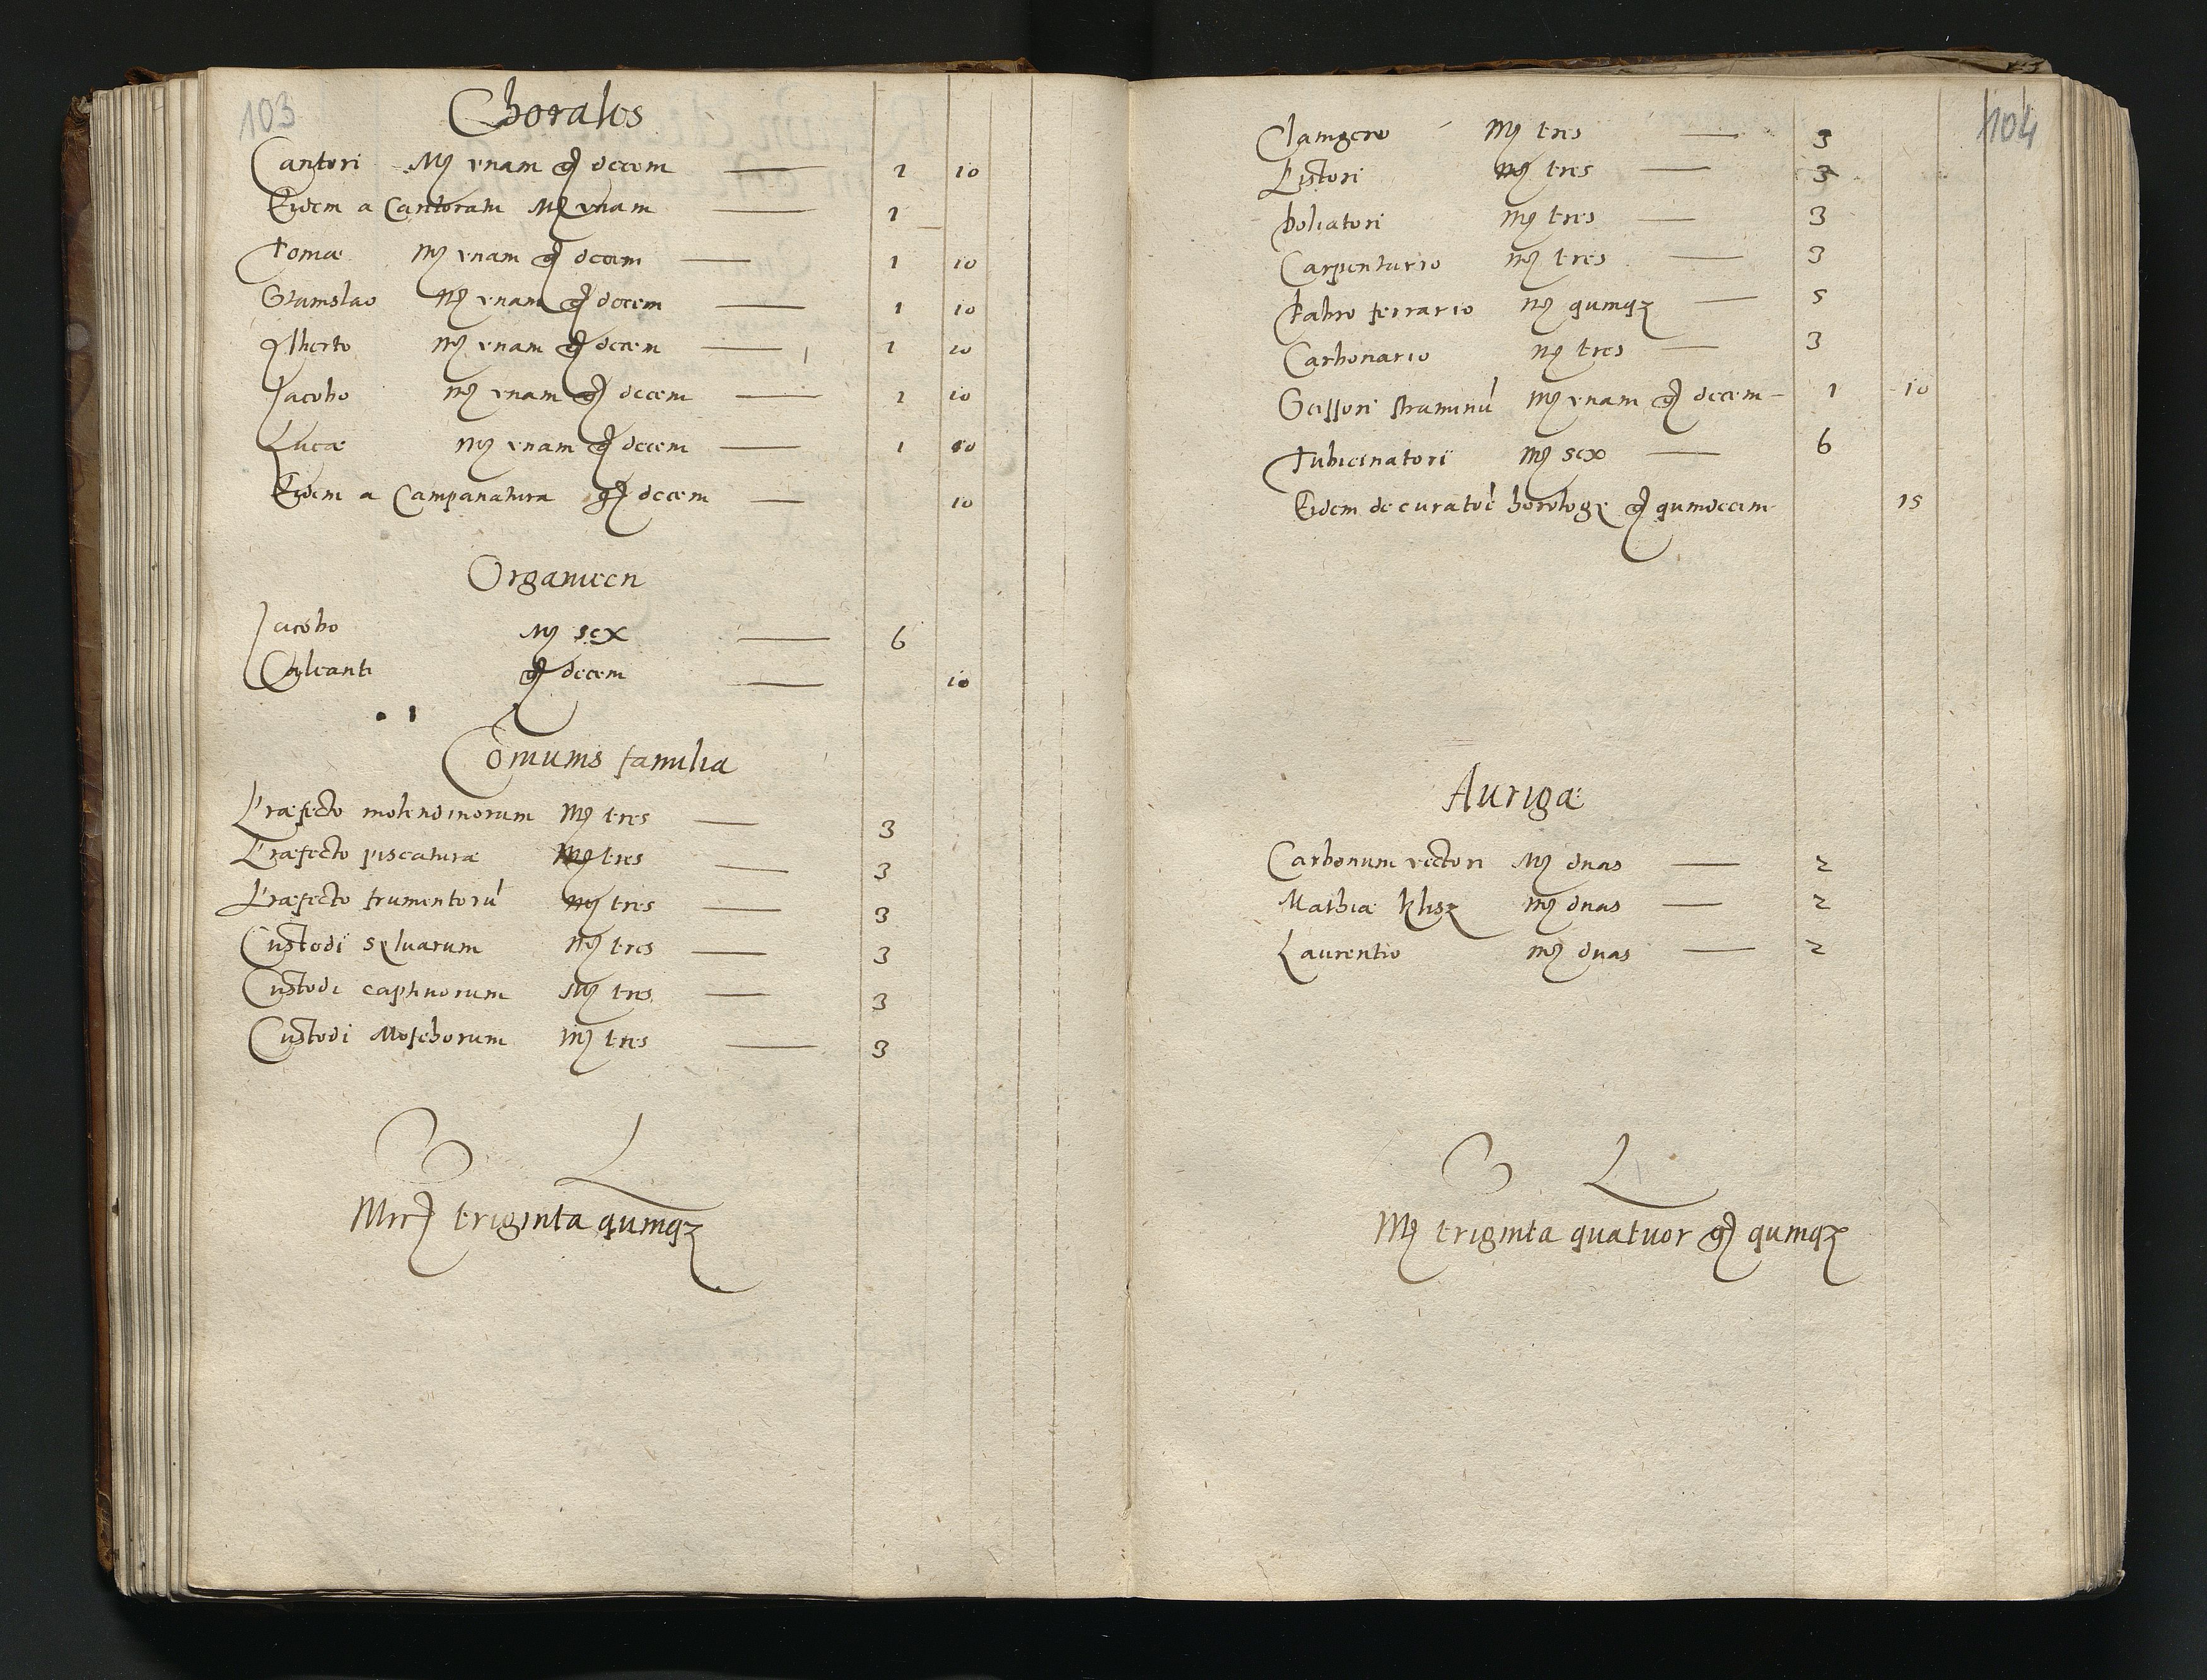 103
Chorales
Cantori Mꝭ vnam gꝭ decem 1 10
Eidem a Cantoratu Mꝭ vnam 1
Tomæ Mꝭ vnam gꝭ decem 1 10
Stanislao Mꝭ vnam gꝭ decem 1 10
Alberto Mꝭ vnam gꝭ decem 1 10
Jacobo Mꝭ vnam gꝭ decem 1 10
Lucæ Mꝭ vnam gꝭ decem 1 10
Eidem a Campanatura gꝭ decem 10
Organicen
Jacobo Mꝭ sex 6
Calcanti gꝭ decem 10
Com̄unis familia
Præfecto molendinorum Mꝭ tres 3
Præfecto piscaturæ Mꝭ tres 3
Præfecto frumentorū Mꝭ tres 3
Custodi syluarum Mꝭ tres 3
Custodi captiuorum Mꝭ tres 3
Custodi Moschorum Mꝭ tres 3
Mrꝭ triginta quinqꝫ
104
Clauigero Mꝭ tres 3
Pistori Mꝭ tres 3
Doliatori Mꝭ tres 3
Carpentario Mꝭ tres 3
Fabro ferrario Mꝭ quinqꝫ 5
Carbonario Mꝭ tres 3
Scissori straminū Mꝭ vnam gꝭ decem 1 10
Tubicinatori Mꝭ sex 6
Eidem de curatōe horologÿ gꝭ quindecim 15
Aurigæ
Carbonum vectori Mꝭ duas 2
Mathiæ Klisz Mꝭ duas 2
Laurentio Mꝭ duas 2
Mꝭ triginta quatuor gꝭ quinqꝫ